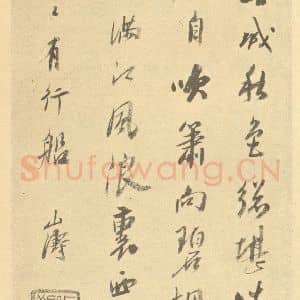 城秋色總堪
自吹簫向碧
滿江風浪裏西
有行船 山濤
Shufawang.CN